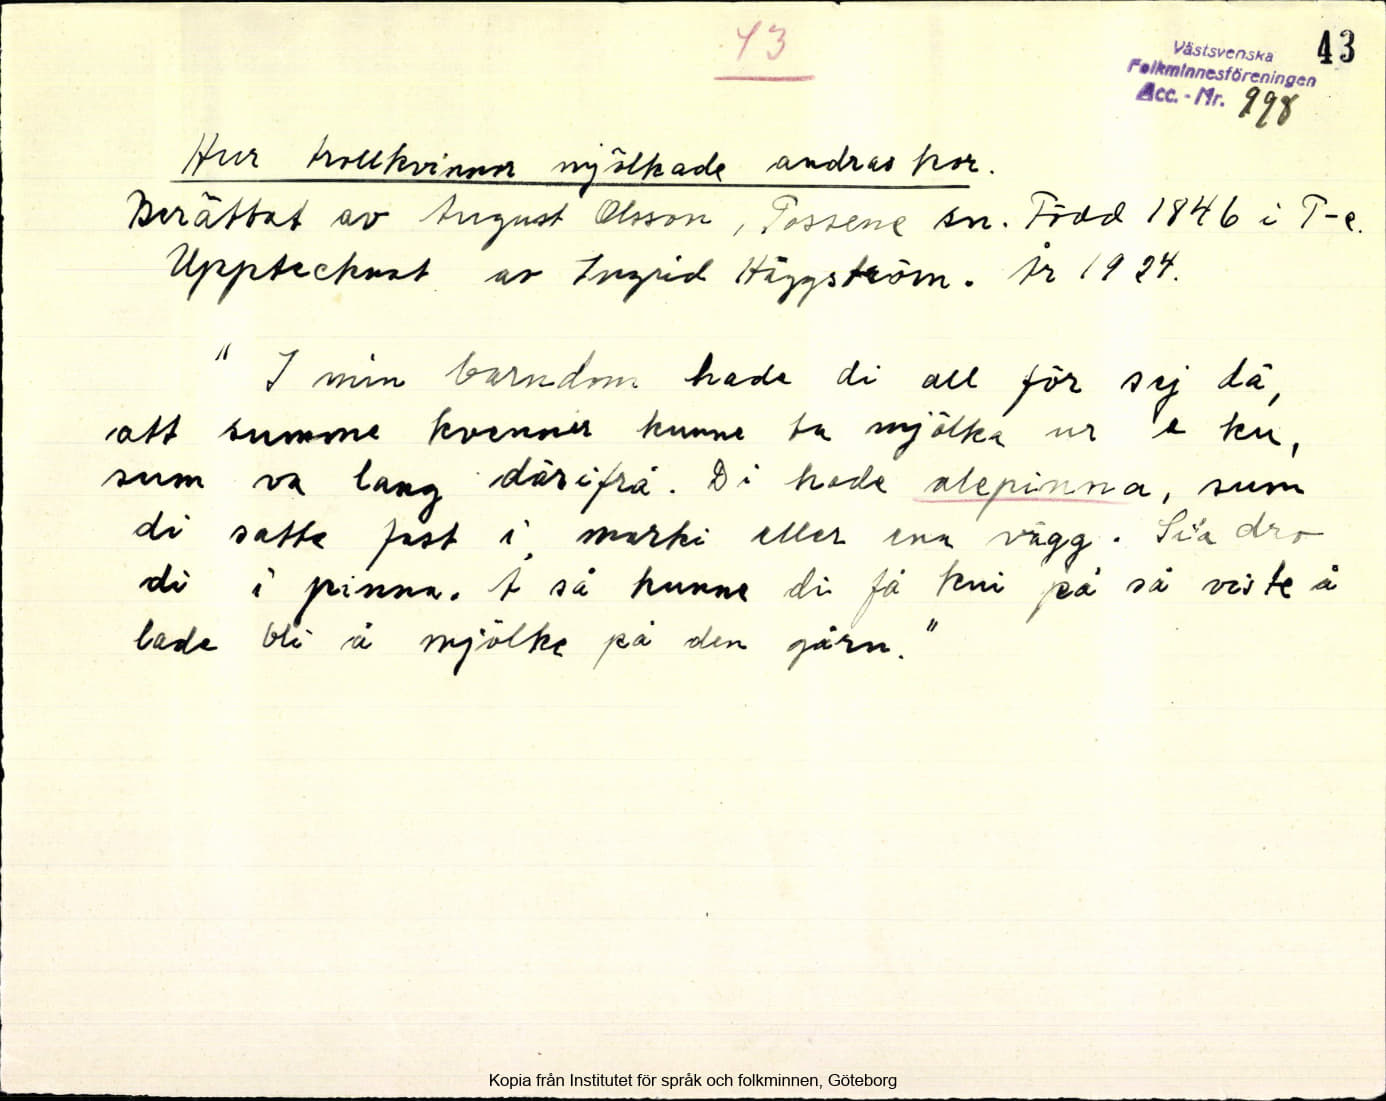 43
43
Västsvenska
Folkminnesföreningen
Acc. - Nr. 998
Hur trollkvinnor mjölkade andras kor.
Berättat av August Olsson, Tossene sn. Född 1846 i T-e.
Upptecknat av Ingrid Häggström. År 1924.
" I min barndom hade di all för sej dä,
att summe kvenner kunne ta mjölka ur e ku,
sum va lang därifrå. Di hade alepinna, sum
di satte fast i marki eller ena vägg. Sia dro
di i pinna. Å så kunne di få kui på så viste å
lade bli å mjölke på den gårn."
Kopia från Institutet för språk och folkminnen, Göteborg